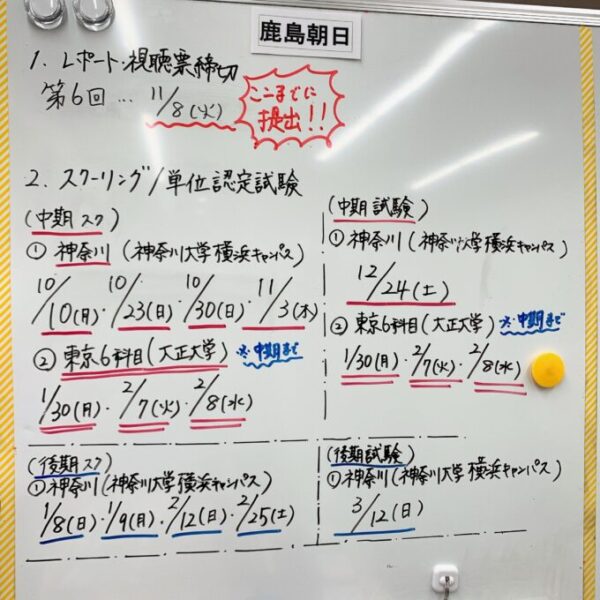 鹿島朝日
1. レポート・視聴票締切
第6回 … 11/8(火)
ここまでに
提出!!
2. スクーリング/単位認定試験
(中期スク)
① 神奈川 (神奈川大学横浜キャンパス)
10/10(月)・10/23(日)・10/30(日)・11/3(木)
② 東京6科目(大正大学) ※中期まで
1/30(月)・2/7(火)・2/8(水)
(中期試験)
① 神奈川 (神奈川大学横浜キャンパス)
12/24(土)
② 東京6科目(大正大学) ※中期まで
1/30(月)・2/7(火)・2/8(水)
(後期スク)
①神奈川(神奈川大学横浜キャンパス)
1/8(日)・1/9(月)・2/12(日)・2/25(土)
(後期試験)
①神奈川(神奈川大学横浜キャンパス)
3/12(日)